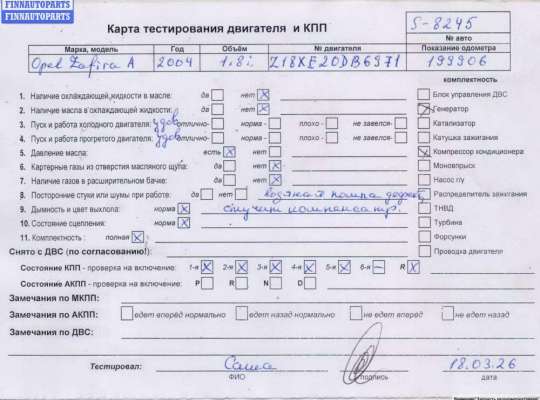 FINNAUTOPARTS
FINNAUTOPARTS
Карта тестирования двигателя и КПП
S-8245
№ авто
Марка, модель Год Объём № двигателя Показание одометра
Opel Zafira A 2004 1.8i Z18XE20DB6971 199906
комплектность
1. Наличие охлаждающей жидкости в масле: да нет Блок управления ДВС
2. Наличие масла в охлаждающей жидкости: да нет Генератор
3. Пуск и работа холодного двигателя: удов отлично- норма - плохо - не завелся- Катализатор
4. Пуск и работа прогретого двигателя: удов отлично- норма - плохо - не завелся- Катушка зажигания
5. Давление масла: есть нет Компрессор кондиционера
6. Картерные газы из отверстия масляного щупа: да нет Моновпрыск
7. Наличие газов в расширительном бачке: да нет Насос г/у
8. Посторонние стуки или шумы при работе: да нет водяная помпа Распределитель зажигания
9. Дымность и цвет выхлопа: норма ТНВД
10. Состояние сцепления: норма Турбина
11. Комплектность : полная Форсунки
Снято с ДВС (по согласованию!): Проводка двигателя
Состояние КПП - проверка на включение: 1-я 2-я 3-я 4-я 5-я 6-я R
Состояние АКПП - проверка на включение: P R N D
Замечания по МКПП:
Замечания по АКПП: едет вперёд нормально едет назад нормально не едет вперёд не едет назад
Замечания по ДВС:
Тестировал: Саша 18.03.26
ФИО подпись дата